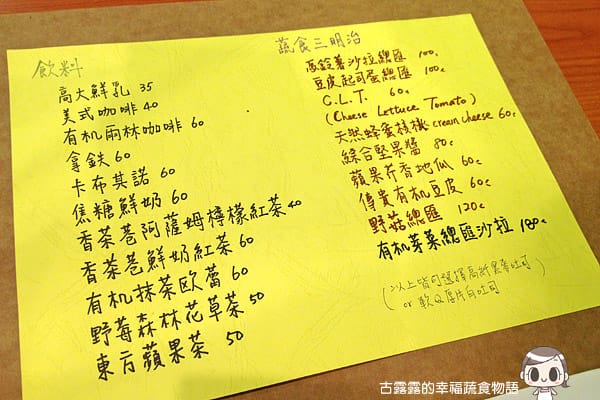 飲料
高大鮮乳 35
美式咖啡 40
有机雨林咖啡 60
拿鉄 60
卡布其諾 60
焦糖鮮奶 60
香茶巷阿薩姆檸檬紅茶 40
香茶巷鮮奶紅茶 60
有机抹茶歐蕾 60
野莓森林花草茶 50
東方蘋果茶 50
蔬食三明治
馬鈴薯沙拉總匯 100.
豆皮起司蛋總匯 100.
C.L.T. 60.
(Cheese Lettuce Tomato)
天然蜂蜜核桃 cream cheese 60.
綜合堅果醬 80.
蘋果芥香地瓜 60.
傳貴有机豆皮 60.
野菇總匯 120.
有机芽菜總匯沙拉 180.
(以上皆可選擇高纖黑麥吐司
or 軟Q厚片白吐司)
古露露的幸福蔬食物語